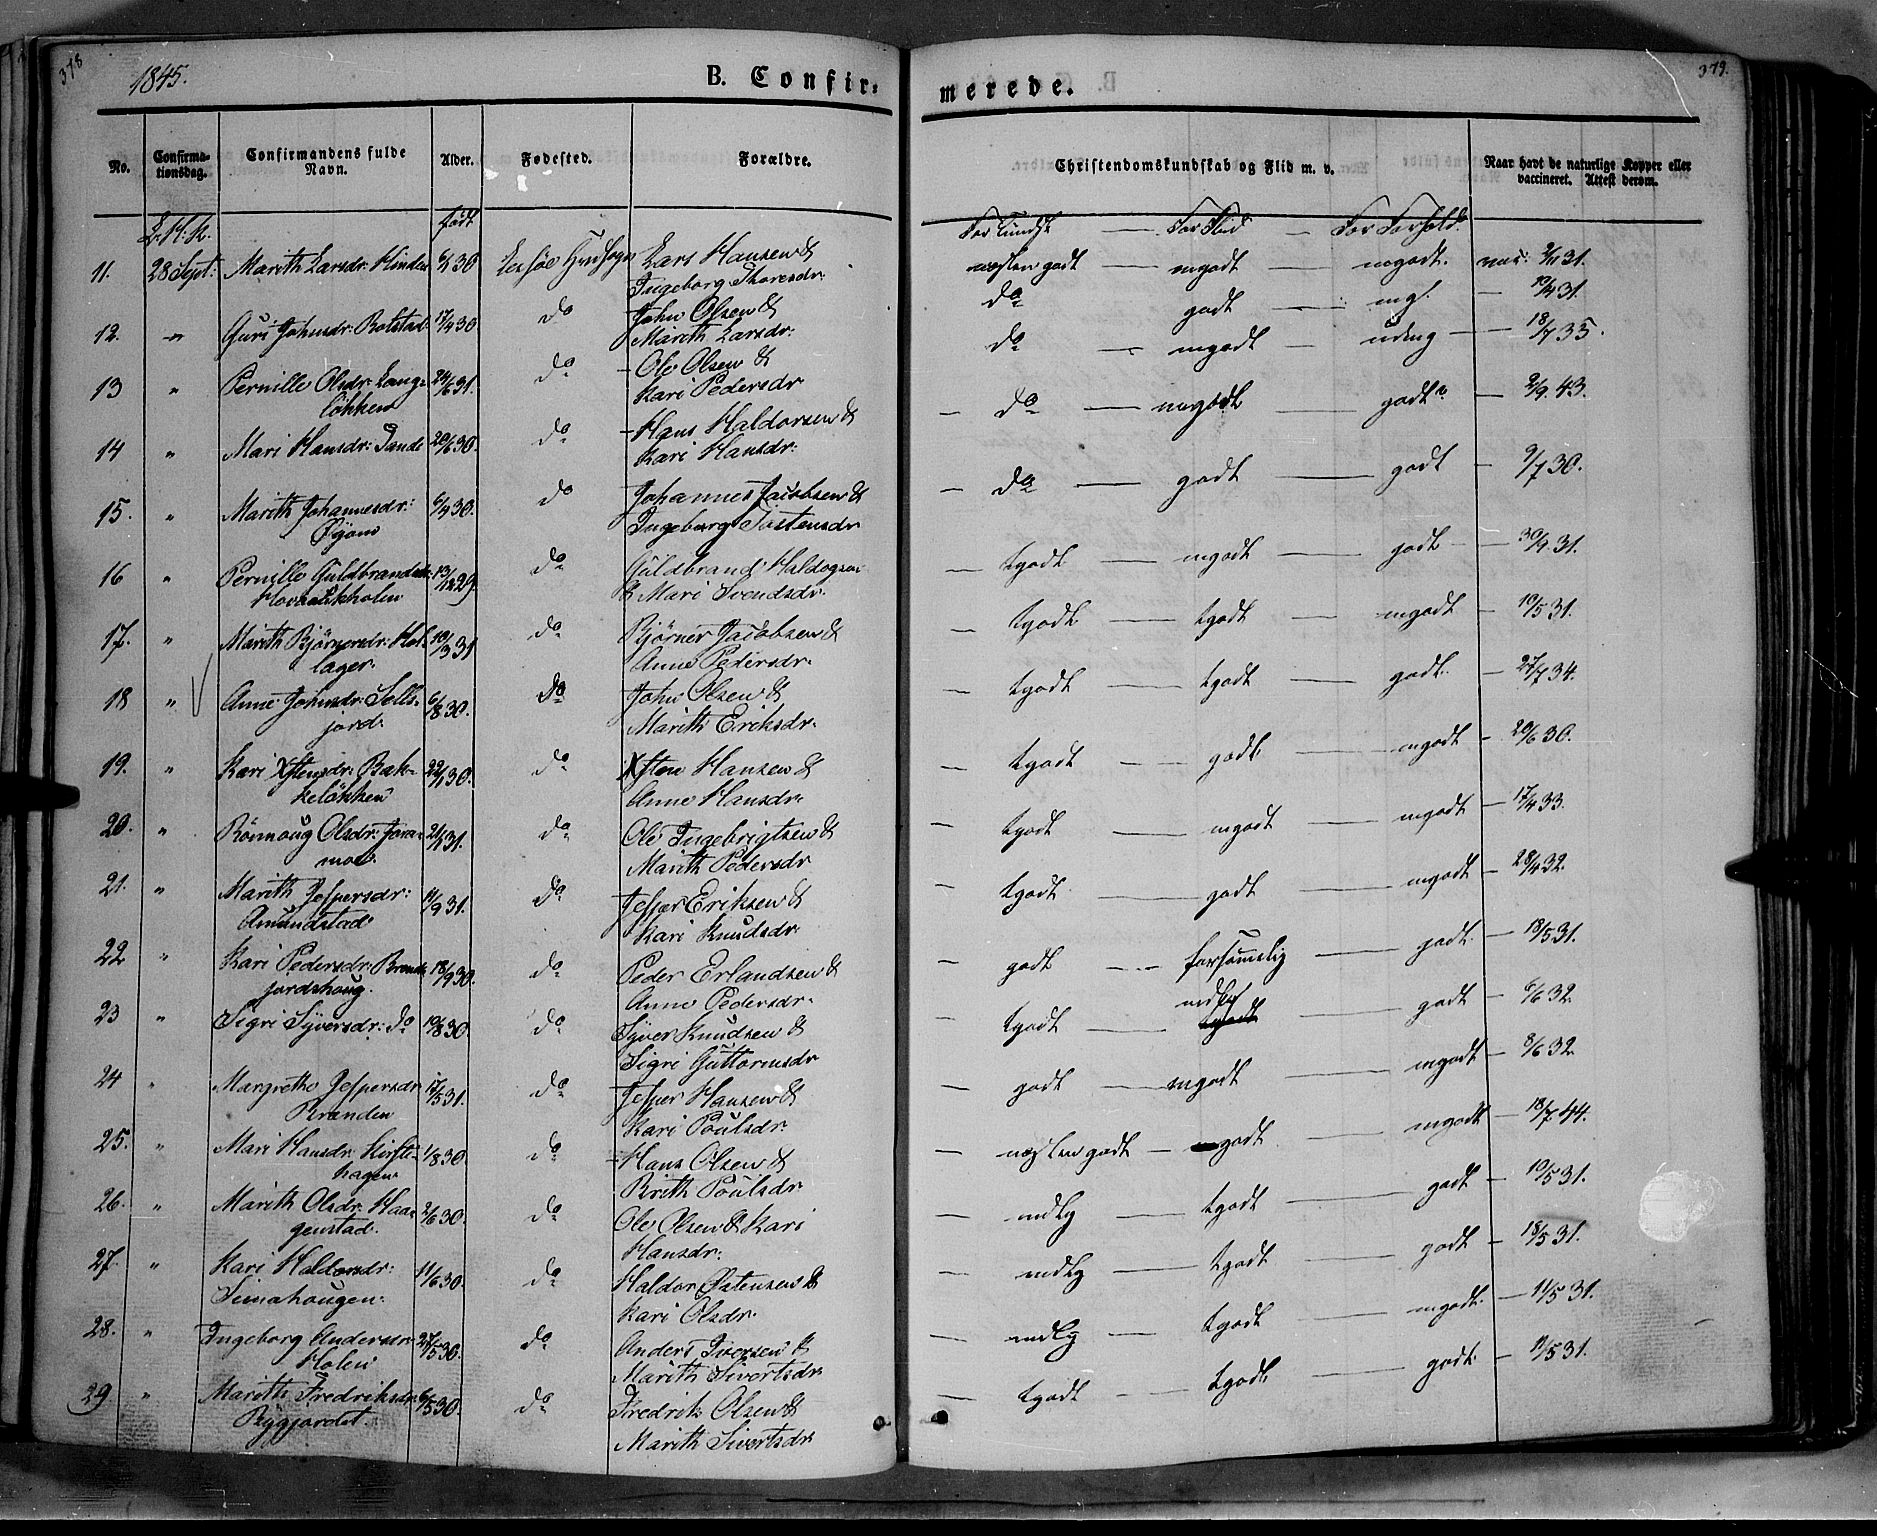 378
1845.
B. Confir-
merede.
379.
No.
Confirma-
tionsdag.
Confirmandens fulde
Navn.
Alder.
Fødested.
Forældre.
Christendomskundskab og Flid m. v.
Naar havt de naturlige Kopper eller
vaccineret. Attest derom.
L. H. K.
født
For Kundsk — For Flid — For Forhold.
11. 28 Sept: Marith Larsdr: 6/1 30 Lessøe Hvdsogn Lars Hansen &
Ingeborg Thoresdr.
næsten godt — mgodt — mgodt. vac: 31.
12. " Guri Johnsdr: Botstad. 17/4 30 do John Olsen &
Marith Larsdr.
do godt — mg. — 19/4 31.
13 " Pernille Olsdr: Lang-
løkken 24/6 31. do Ole Olsen &
Kari Pedersdr
do — mgodt — udmg — 18/7 35.
14 " Mari Hansdr: Tande 20/6 30. do Hans Haldorsen &
Kari Hansdr:
— do — mgodt — godt — 2/9 43.
15. " Marith Johannesdr:
Øyom 6/4 30. do Johannes Jacobsen &
Ingeborg Tostensdr
— do — godt — godt — 9/7 30.
16 " Pernille Guldbrandsdr:
13/12 29. do Guldbrand
& Mari Svendsdr.
— tgodt — mgodt — godt — 30/9 31.
17. " Marith Bjørnersdr:
lager. 10/3 31 do Bjørner Jacobsen &
Anne Pedersdr.
— tgodt — tgodt — mgodt — 10/5 31.
18 " Anne Johnsdr: Sells-
jord. 6/8 30. do John Olsen &
Marith Eriksdr.
— tgodt — tgodt — godt — 27/7 34.
19. " Kari Xstensdr: Bak-
keløkken 22/1 30. do Xsten Hansen &
Anne Hansdr.
— tgodt — godt — mgodt — 20/6 30.
20. " Rønnoug Olsdr: Jora-
moe. 21/1 31. do Ole Ingebrigtsen &
Marith Pedersdr
— tgodt — mgodt — mgodt — 17/4 33.
21. " Marith Jespersdr:
Amundstad 11/9 31. do Jesper Eriksen &
Kari Knudsdr.
— tgodt — godt — mgodt — 28/4 32.
22 " Kari Pedersdr:
jordshoug. 18/9 30. do Peder Erlandsen &
Anne Pedersdr.
— godt — forsømelig — godt — 18/5 31.
23 " Sigri Syversdr: do 10/8 30. do Syver Knudsen &
Sigri Guttormsdr
— tgodt — mdlg — godt — 6/6 32.
24 " Margrethe Jespersdr
Brænden 17/5 31. do Jesper Hansen &
Kari Poulsdr.
— godt — mgodt — mgodt — 8/6 32
25. " Mari Hansdr: Kirste-
hagen 1/8 30. do Hans Olsen &
Brith Poulsdr
— næsten godt — godt — mgodt — 18/7 44.
26. " Marith Olsdr: Haa-
genstad. 2/6 30. do Ole Olsen & Kari
Hansdr.
— mdlg — tgodt — godt — 10/5 31.
27. " Kari Haldorsdr:
Simahougen. 11/6 30. do Haldor Østensen &
Kari Olsdr.
— mdlg — tgodt — godt — 18/5 31.
28. " Ingeborg Andersdr
Holen 27/5 30. do Anders Iversen &
Marith Sivertsdr
— mdlg — tgodt — mgodt. — 11/5 31.
29 " Marith Fredriksdr.
Byggjordet. 6/5 30. do Fredrik Olsen &
Marith Sivertsdr
— tgodt — tgodt — godt — 11/5 31.